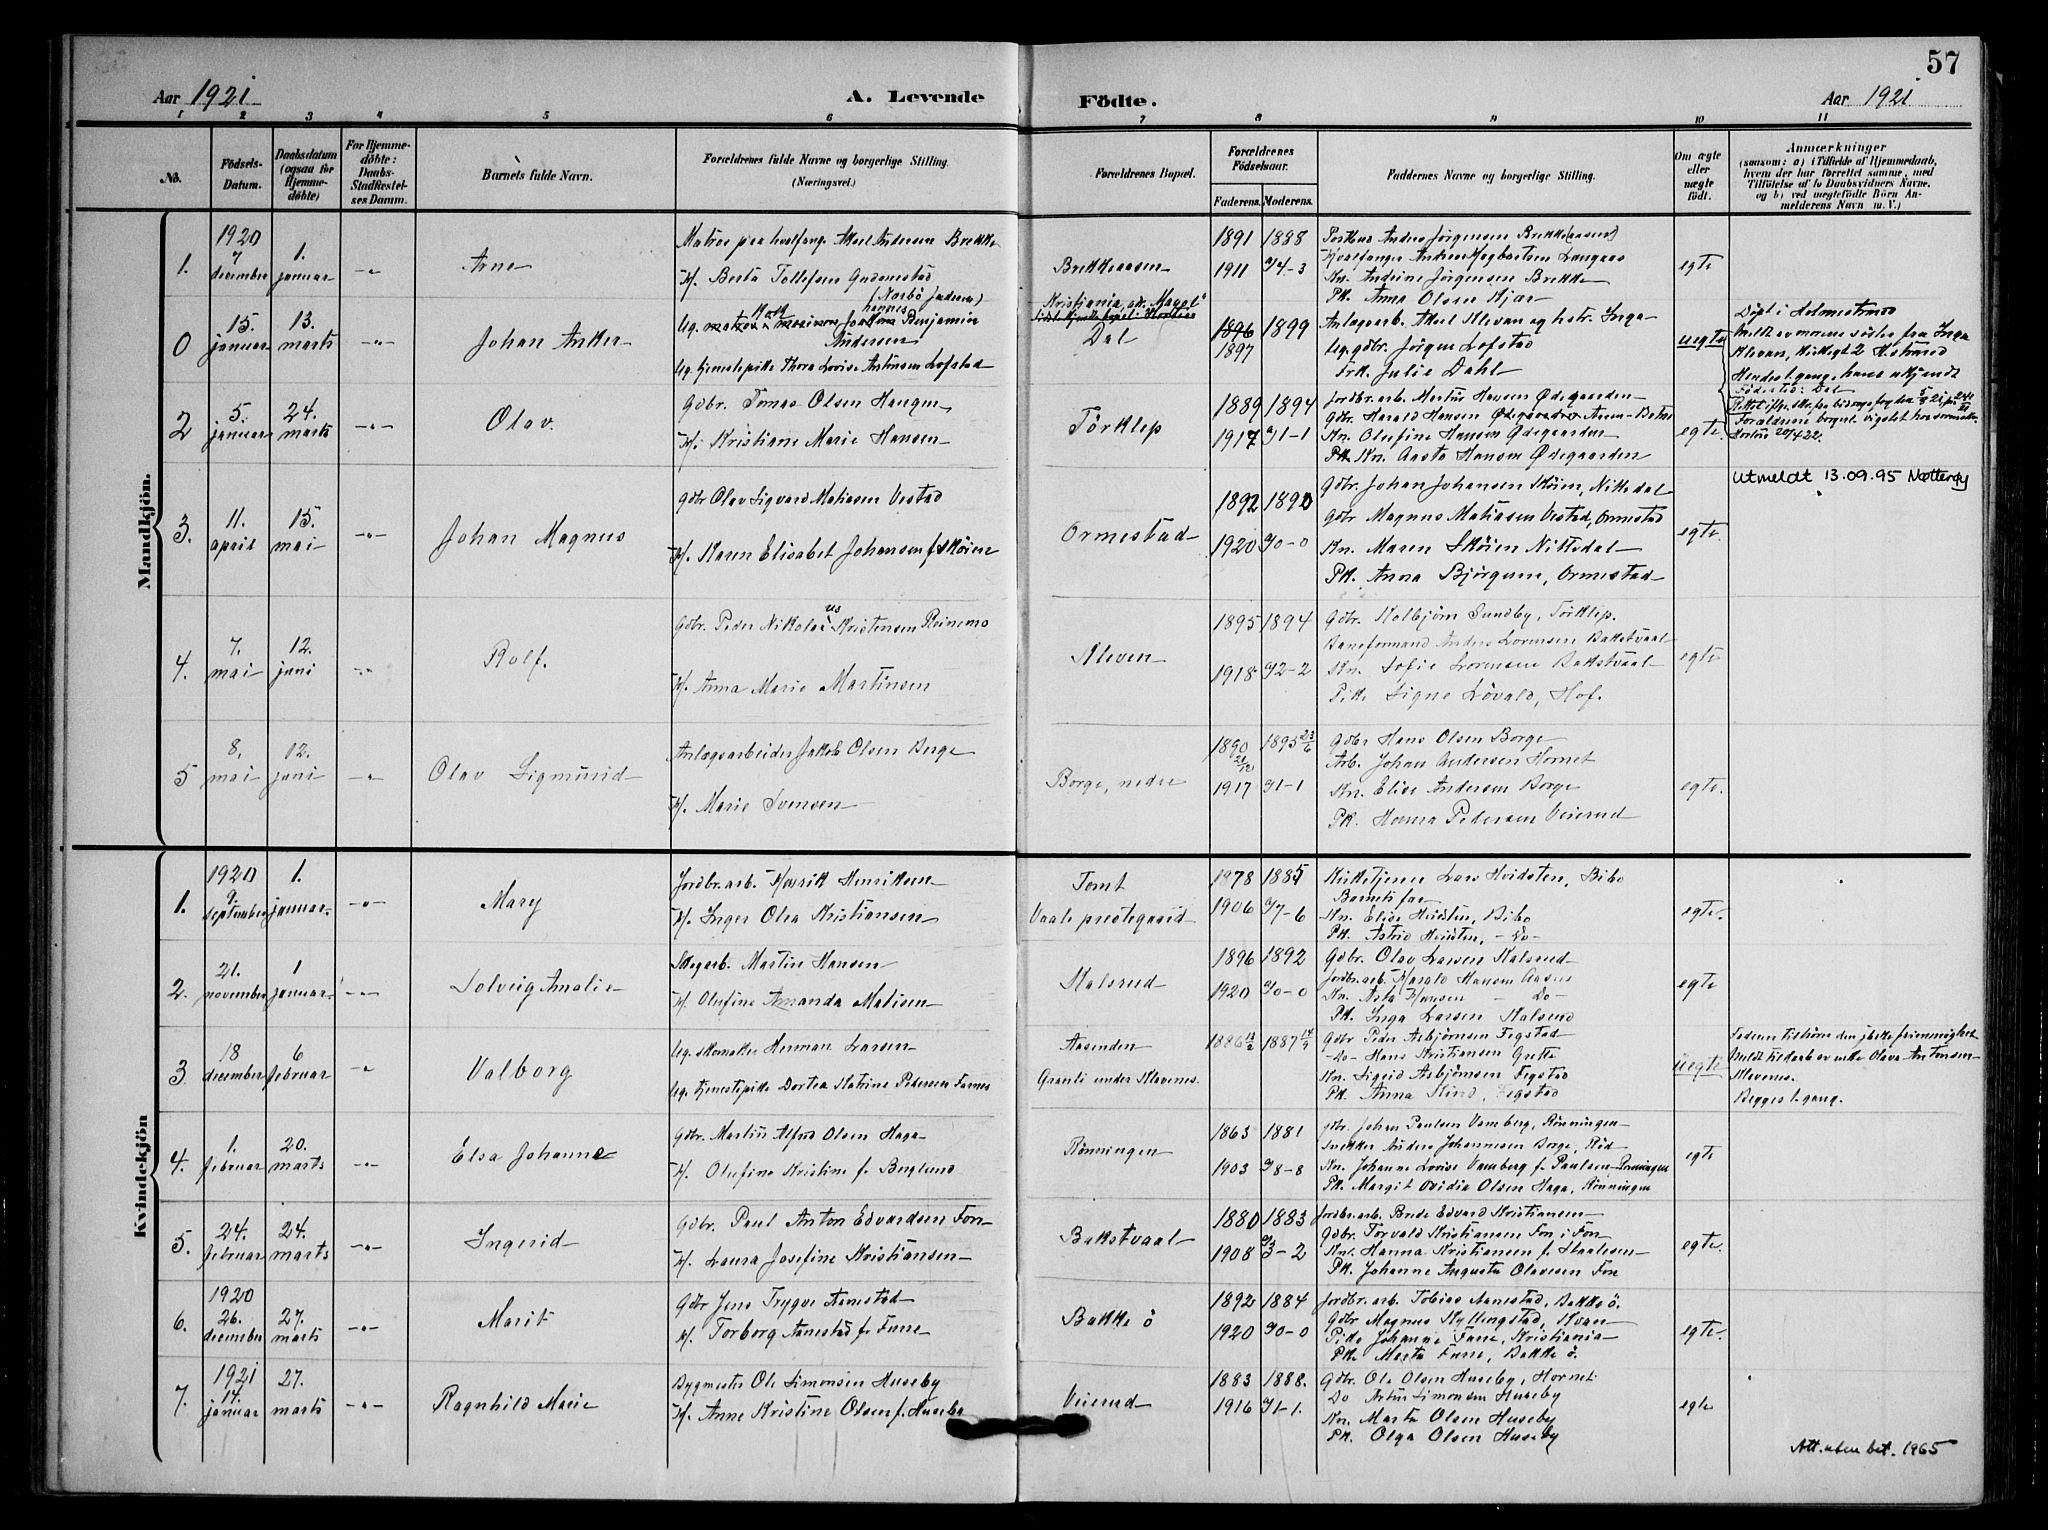 57
Aar 1921
A. Levende
Födte.
Aar 1921
1 2 3 4 5 6 7 8 9 10 11
No.
Födsels-Datum.
Daabsdatum (ogsaa for Hjemmedöbte)
For Hjemmedöbte: Daabs-Stadfæstelses Datum.
Barnets fulde Navn.
Forældrenes fulde Navne og borgerlige Stilling. (Næringsvei.)
Forældrenes Bopæl.
Forældrenes Födselsaar.
Faderens. Moderens.
Faddernes Navne og borgerlige Stilling.
Om ægte eller uægte födt.
Anmærkninger
(saasom: a) i Tilfælde af Hjemmedaab,
hvem der har forrettet samme, med
Tilföielse af to Daabsvidners Navne,
og b) ved uægtefödte Börn An-
melderens Navn m. V.)
Mandkjön.
1.
1920
7 december
1. januar
-"-
Arne
Matros paa hvalfange Aksel Andersen Brekke
H/. Berta Tollefsen Gudemestad
Brekkeaasen
1891 1888
1911 9/4-3
Anders Jörgensen Brekke (aasen)
Hvalfanger Andreas Langaas
Kn. Andrine Jörgensen Brekke
Pk. Anna Olsen Kjær
egte
0
15. januar
13. marts
-"-
Johan Anker
(Narbö Jæderen)
Ug. Benjamin
Andersen
Ug. tjenestepike Thora Lovise Antonsen Lofstad
Kristiania
Dal
1896 1899
1897
Anlægsarb. Aksel Kleven og hstr. Inga
Ug. gdbr. Jörgen Lofstad
Frk. Julie Dahl
uegte
Döpt i Holmestrand
Meldt av morens söster fru Inga
Kleven, Kirkegt 2 H.strand
Hendes 1. gang, hans ukjendt
Födested: Dal
Forældrene borgerl. viet hos sorenskr.
Horten 20/4 22.
2
5. januar
24. marts
-"-
Olav.
Gdbr. Tomas Olsen Haugen
H/. Kristiane Marie Hansen
Törklep
1889 1894
1917 9/1-1
Jordbr.arb. Martin Hansen Ödegaarden
Gdbr. Harald Hansen Ödegaarden
Kn. Olufine Hansen Ödegaarden
Kn. Aasta Hansen Ödegaarden
egte.
3.
11. april
15. mai
-"-
Johan Magnus
Gdbr Olav Sigvard Matiasen Vestad
H/. Karen Elisabet Johansen f. Sköien
Ormestad
1892 1890
1920 9/0-0
Gdbr. Johan Johansen Sköien, Nittedal
Gdbr Magnus Matiasen Vestad, Ormestad
Kn. Maren Sköien Nittedal
Pk. Anna Björgum, Ormestad
egte.
Utmeldt 13.09.95 Nøtterøy
4.
7. mai
12. juni
-"-
Rolf.
Gdbr. Peder Nikolaius Kristensen Reinemo
H/. Anna Marie Martinsen
Kleven
1895 1894
1918 9/2-2
Gdbr. Kolbjörn Sundby, Törklep.
Baneformand Anders Lorensen Bakstvaal
Kn. Sofie Lorensen Bakstvaal
Pike Signe Lövald, Hof.
egte
5
8. mai
12. juni
-"-
Olav Sigmund
Anlægsarbeider Jakob Olsen Borge
H/. Marie Svensen
Borge, nedre
1890 21/12 1895 23/6
1917 9/1-1
Gdbr Hans Olsen Borge
Arb. Johan Andersen Hornet
Kn. Elise Andersen Borge
Pk. Hanna Pedersen Veierud
egte.
Kvindekjön
1.
1920
9. september
1. januar
-"-
Mary
Jordbr.arb. Henrik Henriksen
H/. Inger Olea Kristiansen
Tomt
Vaale prestegaard
1878 1885
1906 9/7-6
Kirketjener Lars Hvidsten, Bibo
Barnets far
Kn. Elise Hvidsten, Bibo
Pk. Astrid Hvidsten, -Do-
egte.
2.
21. november
1 januar
-"-
Solveig Amalie
Skogarb. Martin Hansen
H/. Olufine Amanda Matisen
Kalsrud
1896 1892
1920 9/0-0
Gdbr. Olav Larsen Kalsrud
Jordbr.arb Harald Hansen Aasen
Kn. Asta Hansen -Do-
Pk. Inga Larsen Kalsrud
egte
3
18 december
6 februar
-"-
Valborg
Ug. skomaker Herman Larsen
Ug. tjenestepike Dortea Katrine Pedersen Farnes
Aasenden
Granli under Klavenes.
1886 1887
Gdbr Peder Asbjörnsen Fegstad
-Do- Hans Kristiansen
Kn. Sigrid Asbjörnsen Fegstad
Pk. Anna Lind, Fegstad
uegte
Faderen tilhörer den frimenighet
Meldt til enke Olava Antonsen
Klavenes.
Begges 1. gang.
4.
1. februar
20. marts
-"-
Elsa Johanne
Gdbr. Martin Alfred Olsen Haga
H/. Olufine Kristine f. Berglund
Rönningen
1863 1881
1903 9/8-8
Gdbr. Johan Paulsen Vamberg, Rönningen
Snekker Anders Johannesen Borge, Röd
Kn. Johanne Lovise Vamberg f. Paulsen
Pk. Margit Ovidia Olsen Haga, Rönningen
egte
5.
24. februar
24. marts
-"-
Ingerid
Gdbr. Paul Anton Edvardsen Fon
H/. Laura Josefine Kristiansen
Bakstvaal
1880 1883
1908 9/3-2
Jordbr.arb. Brede Edvard Kristiansen
Gdbr. Torvald Kristiansen Fon i Fon
Kn. Hanna Kristiansen f. Staalesen
Pk. Johanne Augusta Olavesen Fon
egte.
6.
1920
26. december
27. marts
-"-
Marit
Gdbr Jens Trygve Aanestad
H/. Torborg Aanestad f. Furre
Bakke ö
1892 1884
1920 9/0-0
Jordbr.arb. Tobias Aanestad, Bakke ö.
Gdbr Magnus Kyllingstad, Kvan
Pike Johanne Furre, Kristiania
Pk. Marta Furre, Bakke ö.
egte.
7.
1921
14. januar
27. marts
-"-
Ragnhild Marie
Bygmester Ole Simonsen Huseby
H/. Anne Kristine Olsen f. Huseby
Veierud
1883 1888.
1916 9/1-1.
Gdbr. Ole Olsen Huseby, Hornet
Do Artur Simonsen Huseby
Kn. Marta Olsen Huseby
Pk. Olga Olsen Huseby
egte
Att. uten bet. 1965